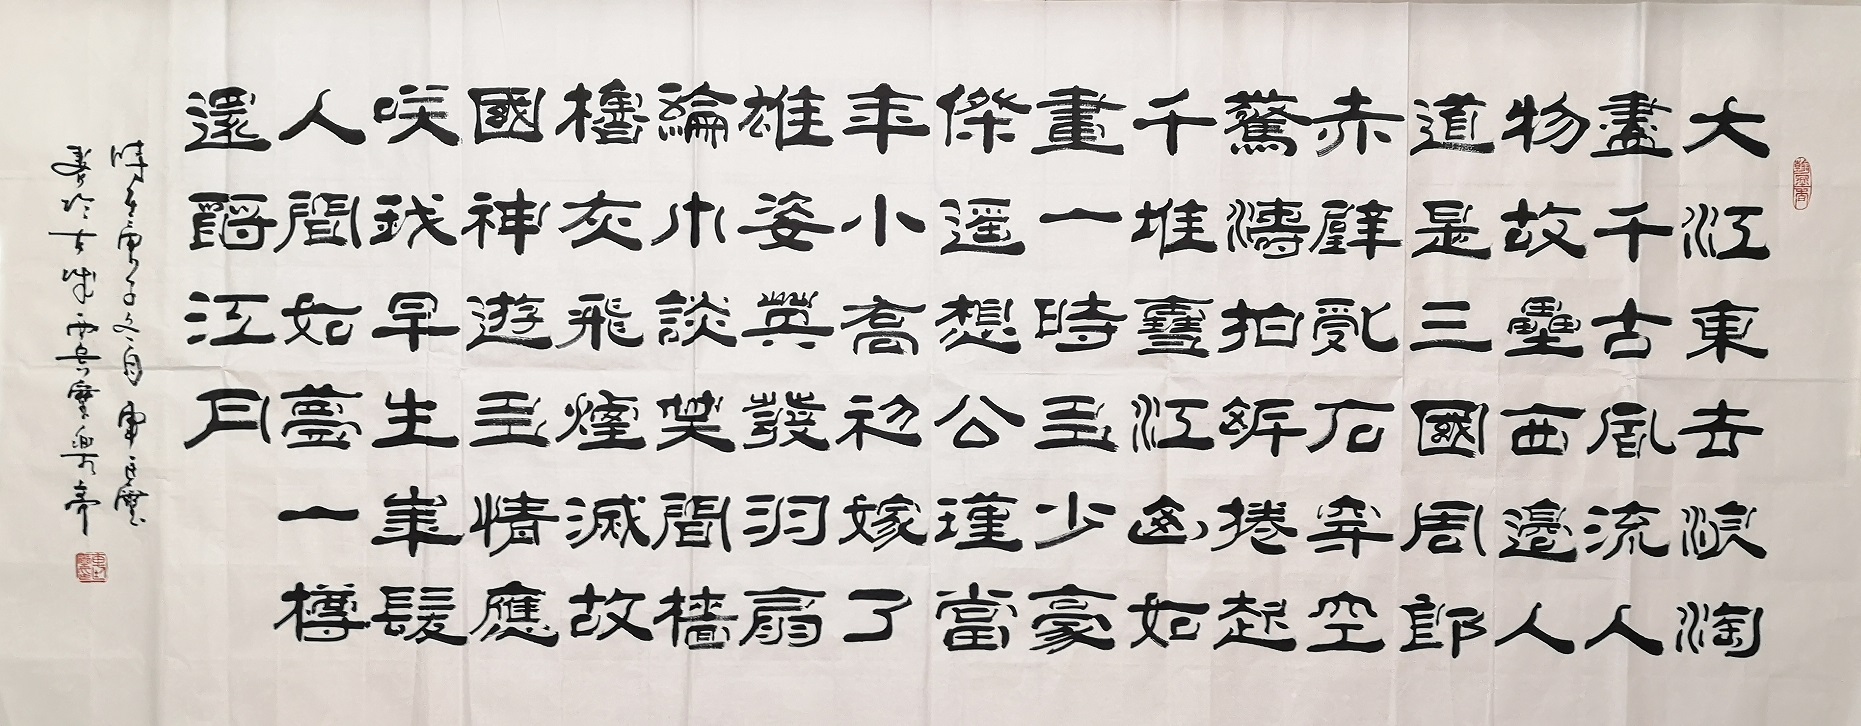 大江東去浪淘
盡千古風流人
物故壘西邊人
道是三國周郎
赤壁亂石穿空
驚濤拍岸捲起
千堆雪江山如
畫一時多少豪
傑遥想公瑾當
年小喬初嫁了
雄姿英發羽扇
綸巾談笑間檣
櫓灰飛煙滅故
國神遊多情應
咲我早生華髮
人間如夢一樽
還酹江月
時在庚子
書於古城西安